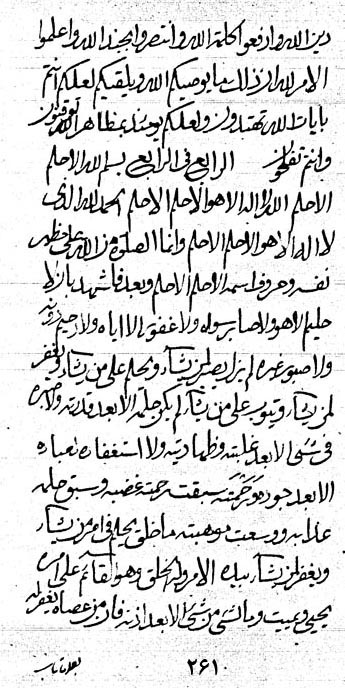 دين الله وارفعوا كلمة الله وانتصروا بجند الله واعلموا
الامر لله اذ ذلك ما يوصيكم الله ويلقيكم لعلكم انتم
بايات الله تهتدون ولعلكم يومئذ بمظاهر الله توقنون
وانتم تفلحون الرابع في الرابع بسم الله الاحلم
الاحلم الله لا اله الا هو الاحلم الاحلم الحمد لله الذى
لا اله الا هو الاحلم الاحلم وانما الصلوة من الله على مظهر
نفسه وحروف اسمه الاحلم الاحلم وبعد فاشهد بان لا
حليم الا هو ولا صابر سواه ولا غفور الا اياه ولا رحيم دونه
ولا صبور غيره لم يزل يصبر لمن يشاء ويحلم على من يشاء ويغفر
لمن يشاء ويتوب على من يشاء لم يكن حلمه الا بعد قدرته ولا صبره
فى شئ الا بعد غلبته وظهاريته ولا استغفاره لعباده
الا بعد جوده ورحمته سبقت رحمته غضبه وسبق حلمه
عذابه ووسعت موهبته ما خلق يحلم فى امر من يشاء
ويغفر لمن يشاء بيده الامر والخلق وهو القائم على امره
يحيي ويميت وما لشئ من شئ الا بعد اذنه فان من عصاه يغفر له
بعد ما تاب
٢٦١